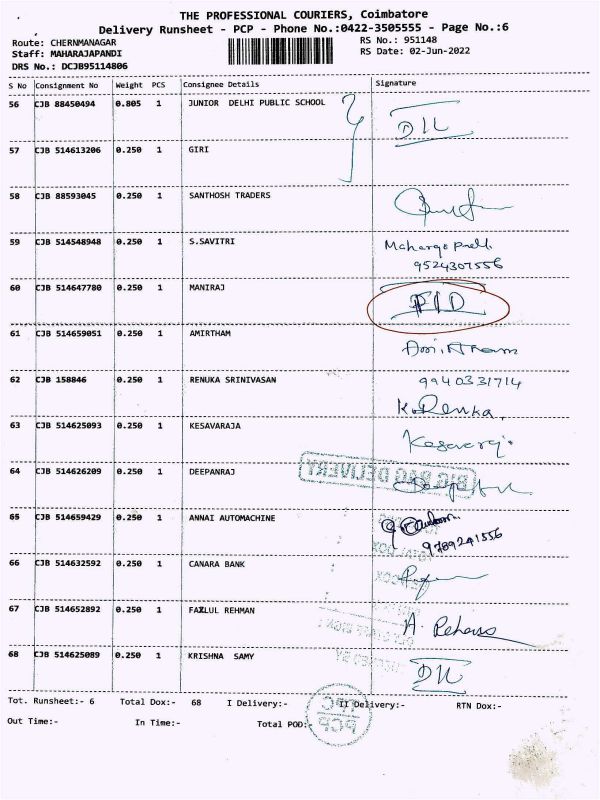 THE PROFESSIONAL COURIERS, Coimbatore
Delivery Runsheet - PCP - Phone No.:0422-3505555 - Page No.:6
Route: CHERNMANAGAR
RS No.: 951148
Staff: MAHARAJAPANDI
RS Date: 02-Jun-2022
DRS No.: DCJB95114806
S No Consignment No Weight PCS Consignee Details Signature
56 CJB 88450494 0.805 1 JUNIOR DELHI PUBLIC SCHOOL
57 CJB 514613206 0.250 1 GIRI
58 CJB 88593045 0.250 1 SANTHOSH TRADERS
59 CJB 514548948 0.250 1 S.SAVITRI
9524307556
60 CJB 514647780 0.250 1 MANIRAJ
61 CJB 514659051 0.250 1 AMIRTHAM
62 CJB 158846 0.250 1 RENUKA SRINIVASAN 9940331714
K.Renuka.
63 CJB 514625093 0.250 1 KESAVARAJA
64 CJB 514626209 0.250 1 DEEPANRAJ
BIG BAG DELIVERY
65 CJB 514659429 0.250 1 ANNAI AUTOMACHINE
9789241556
66 CJB 514632592 0.250 1 CANARA BANK
67 CJB 514652892 0.250 1 FAZLUL REHMAN
68 CJB 514625089 0.250 1 KRISHNA SAMY
Tot. Runsheet:- 6 Total Dox:- 68 I Delivery:- II Delivery:- RTN Dox:-
Out Time:- In Time:- Total POD:-